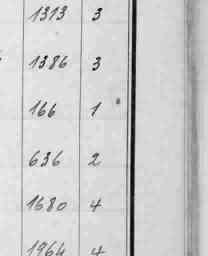 1313 3
1386 3
166 1
636 2
1680 4
1964 4